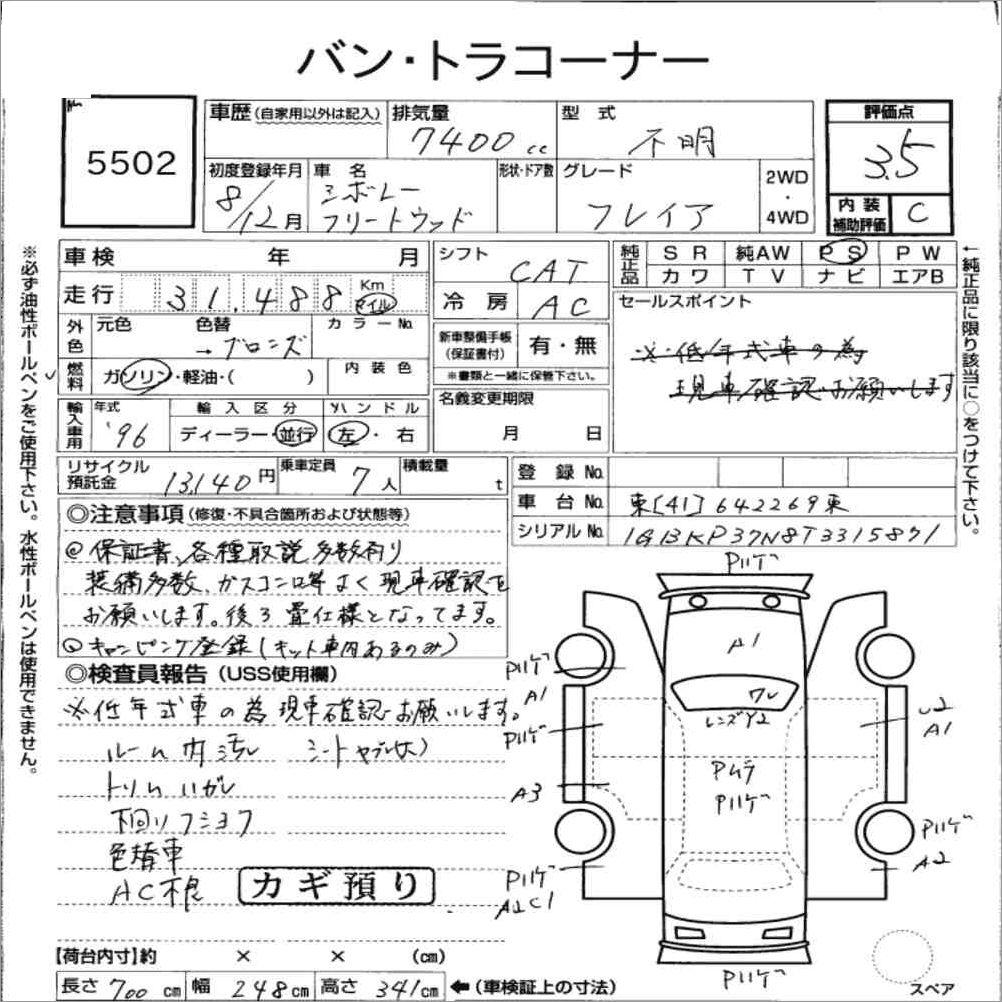 バン・トラコーナー
5502
車歴(自家用以外は記入)
排気量
7400cc
型式
不明
評価点
3.5
初度登録年月
8/12月
車名
シボレー
フリートウッド
形状・ドア数
グレード
フレイア
2WD
・
4WD
内装
補助評価
C
車検 年 月
走行 31,488 Km マイル
外色
元色 色替 カラーNo.
→ブロンズ
燃料
ガソリン・軽油・( )
内装色
輸入車用
年式 '96
輸入区分
ディーラー・並行
ハンドル
左・右
シフト CAT
冷房 AC
新車整備手帳
(保証書付)
有・無
※書類と一緒に保管下さい。
名義変更期限
月 日
純正品
SR 純AW PS PW
カワ TV ナビ エアB
セールスポイント
※・低年式車の為
現車確認お願いします
リサイクル
預託金
13,140円
乗車定員
7人
積載量
t
登録No.
車台No. 東[41]642269東
シリアルNo. 1GBKP37N8T3315871
◎注意事項(修復・不具合箇所および状態等)
◎保証書、各種取説多数有り
装備多数、ガスコンロ等よく現車確認を
お願いします。後ろ畳仕様となってます。
◎キャンピング登録(キット車内あるのみ)
◎検査員報告(USS使用欄)
※低年式車の為現車確認お願いします。
ルーム内汚れ シートヤブレ(大)
トリムハガレ
下回りフショク
色替車
AC不良
カギ預り
【荷台内寸】約 × × (cm)
長さ700cm 幅248cm 高さ341cm ←(車検証上の寸法)
※必ず油性ボールペンをご使用下さい。水性ボールペンは使用できません。
←純正品に限り該当に○をつけて下さい。
Pハゲ
A1
Pハゲ
A1
ワレ
レンズY2
Pハゲ
A1
A3
Pムラ
Pハゲ
Pハゲ
A2
Pハゲ
A2C1
Pハゲ
スペア